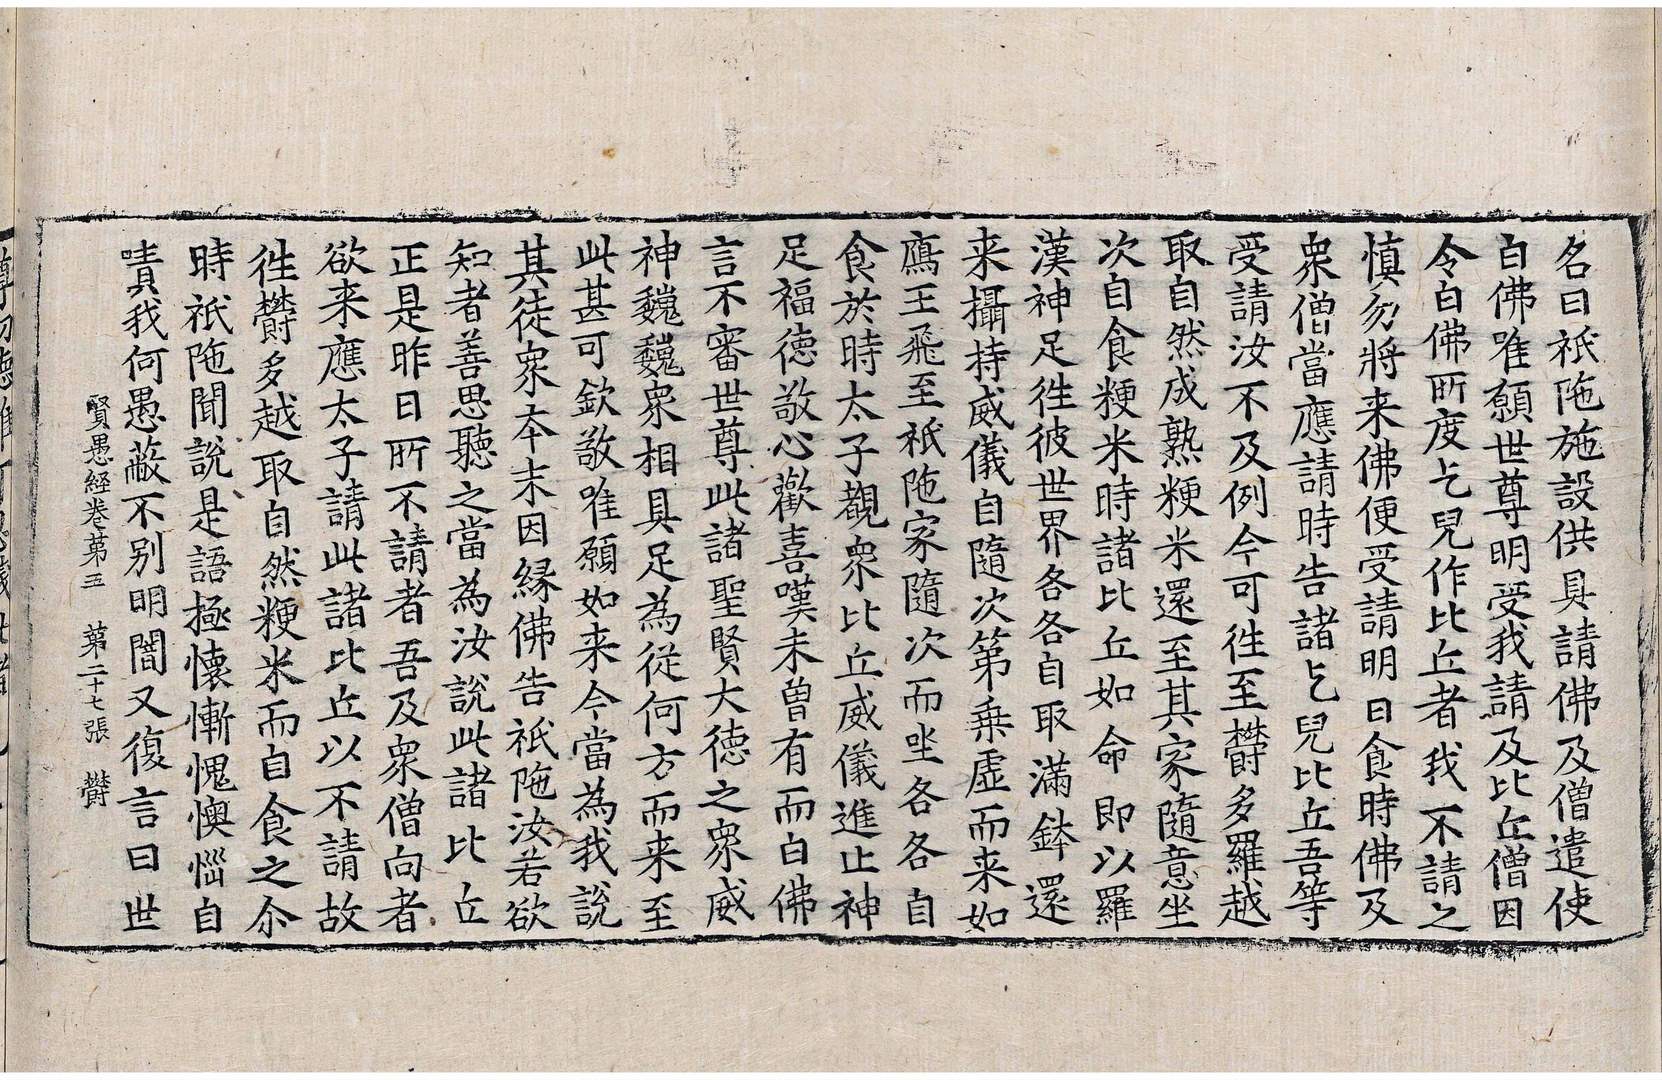 名曰祇陁施設供具請佛及僧遣使
白佛唯願世尊明受我請及比丘僧因
令白佛所度乞兒作比丘者我不請之
慎勿將来佛便受請明日食時佛及
衆僧當應請時告諸乞兒比丘吾等
受請汝不及例今可徃至欝多羅越
取自然成熟粳米還至其家隨意坐
次自食粳米時諸比丘如命即以羅
漢神足徃彼世界各各自取滿鉢還
来攝持威儀自隨次第乗虛而来如
鴈王飛至祇陁家隨次而坐各各自
食於時太子觀衆比丘威儀進止神
足福徳敬心歡喜嘆未曾有而白佛
言不審世尊此諸聖賢大徳之衆威
神巍巍衆相具足為従何方而来至
此甚可欽敬唯願如来今當為我說
其徒衆夲末因縁佛告祇陁汝若欲
知者善思聽之當為汝說此諸比丘
正是昨日所不請者吾及衆僧向者
欲来應太子請此諸比丘以不請故
徃欝多越取自然粳米而自食之尒
時祇陁聞說是語極懷慚愧懊惱自
嘖我何愚蔽不別明闇又復言曰世
賢愚経卷第五 第二十七張 欝